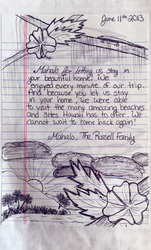 June 11th 2013
Mahalo for letting us stay in
your beautiful home! We
enjoyed every minute of our trip.
And because you let us stay
in your home, we were able
to visit the many amazing beaches
and sites Hawaii has to offer. We
cannot wait to come back again!
Mahalo, The Russell Family